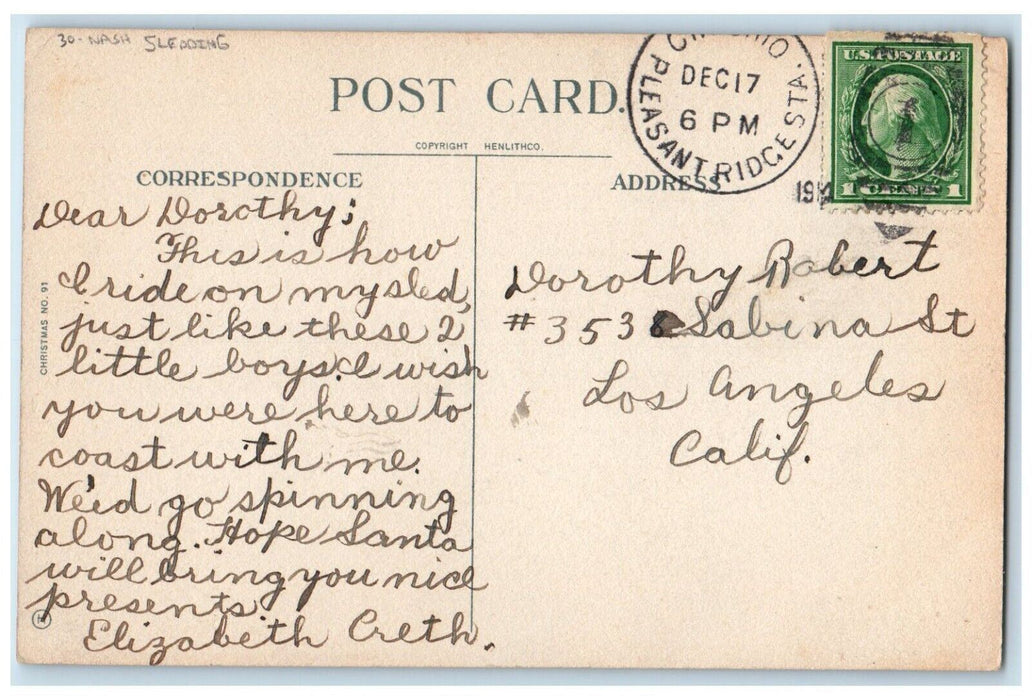 30-NASH SLEDDING
POST CARD.
COPYRIGHT HENLITHCO.
CORRESPONDENCE
ADDRESS
OHIO
DEC 17
6 PM
PLEASANT RIDGE STA.
19
U.S. POSTAGE
1 CENT 1
CHRISTMAS NO. 91
Dear Dorothy;
This is how
I ride on my sled,
just like these 2
little boys. I wish
you were here to
coast with me.
We'd go spinning
along. Hope Santa
will bring you nice
presents.
Elizabeth Creth.
Dorothy Robert
#3538 Sabina St
Los Angeles
Calif.